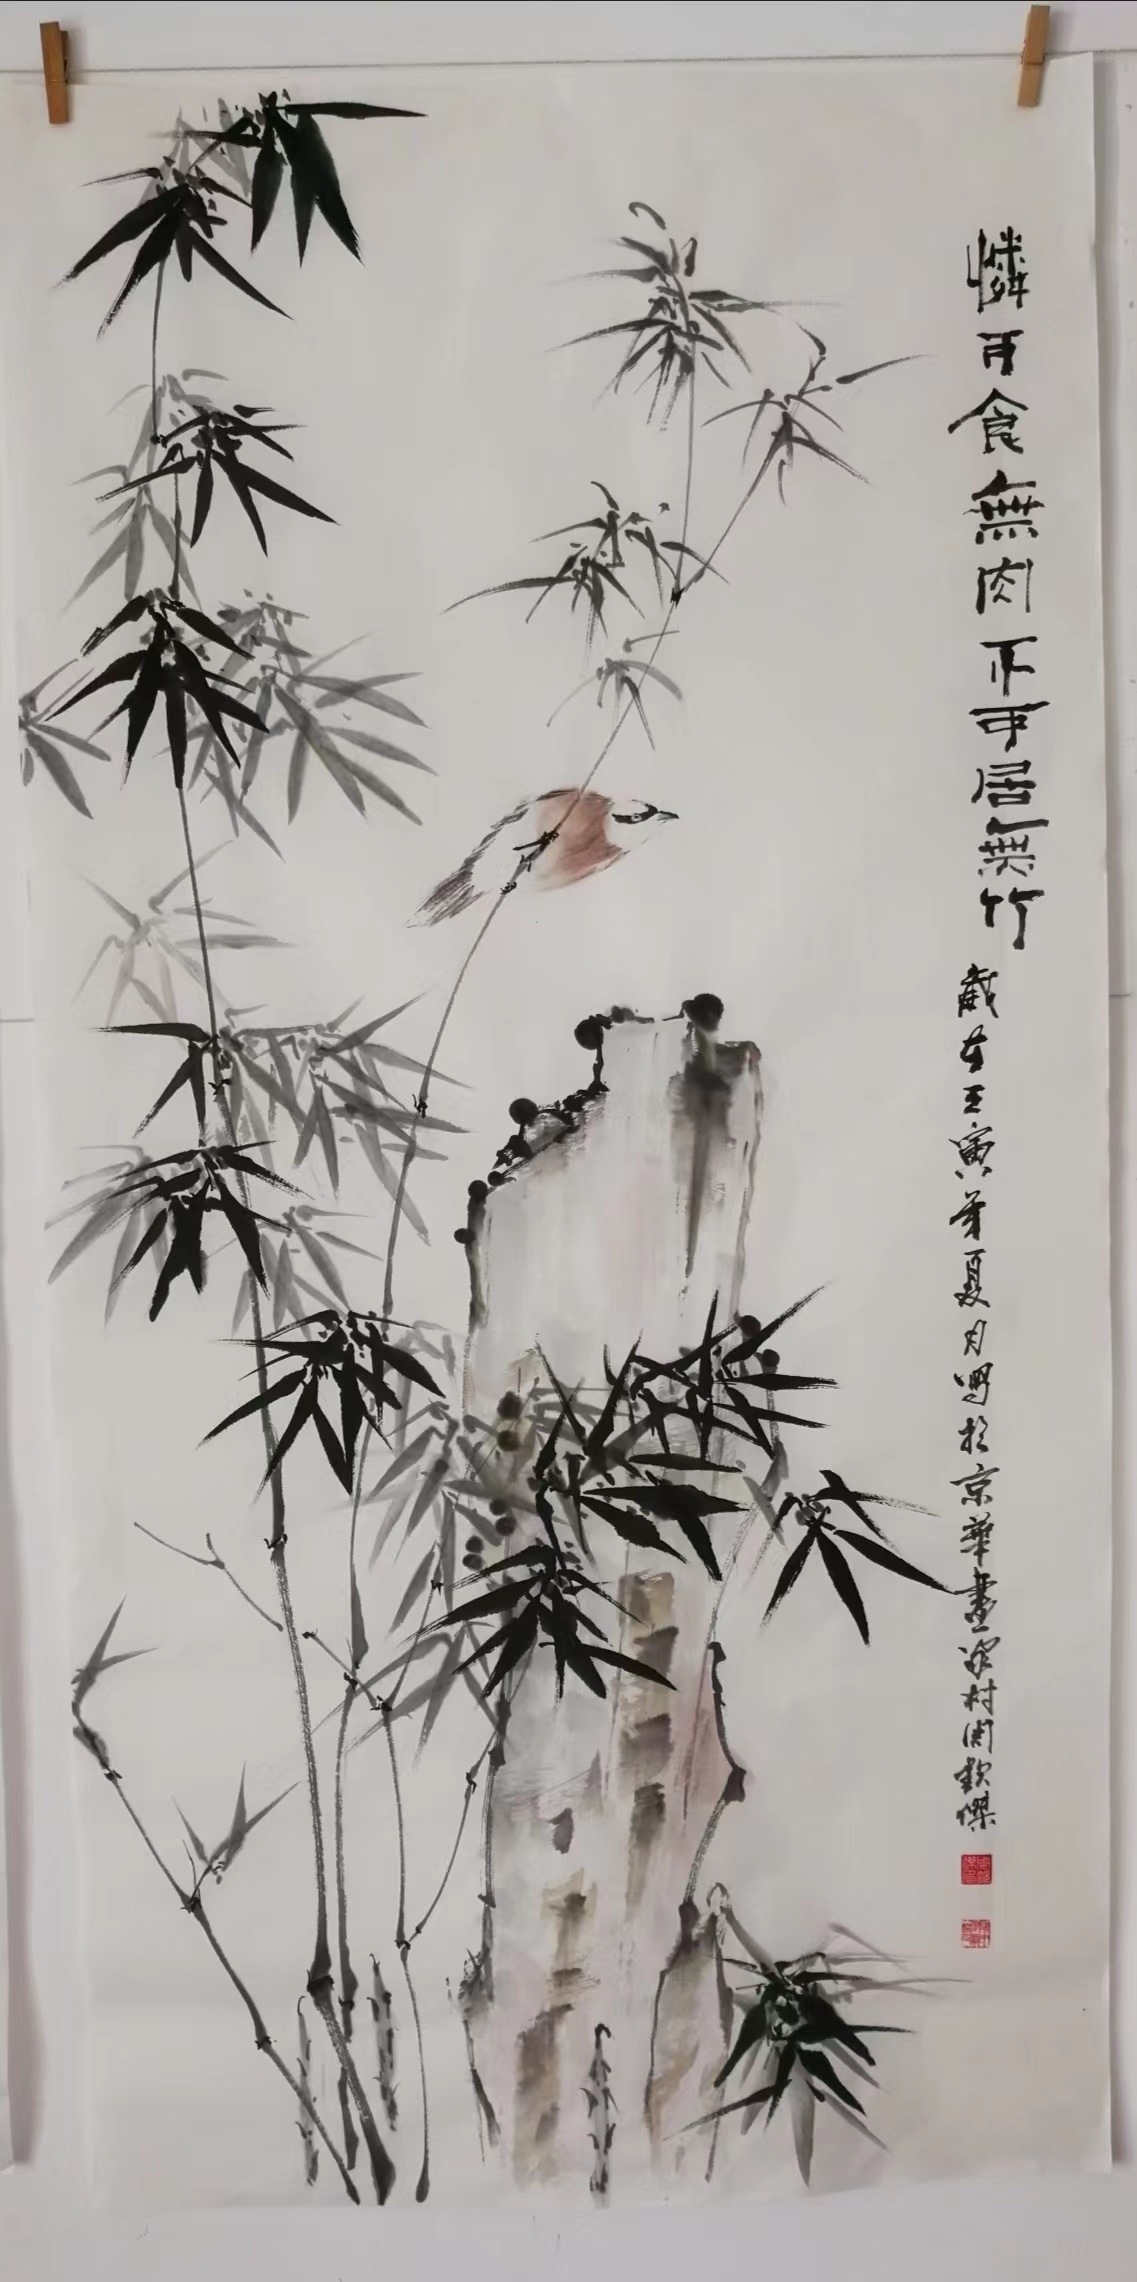 憐可食無肉不可居無竹歲在壬寅年夏月寫於京華畫家村周欽傑